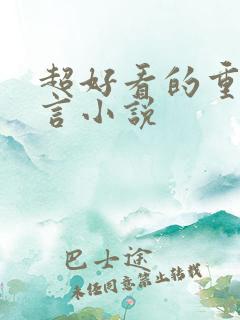 超好看的重
言小说
巴士途
未经同意禁止转载